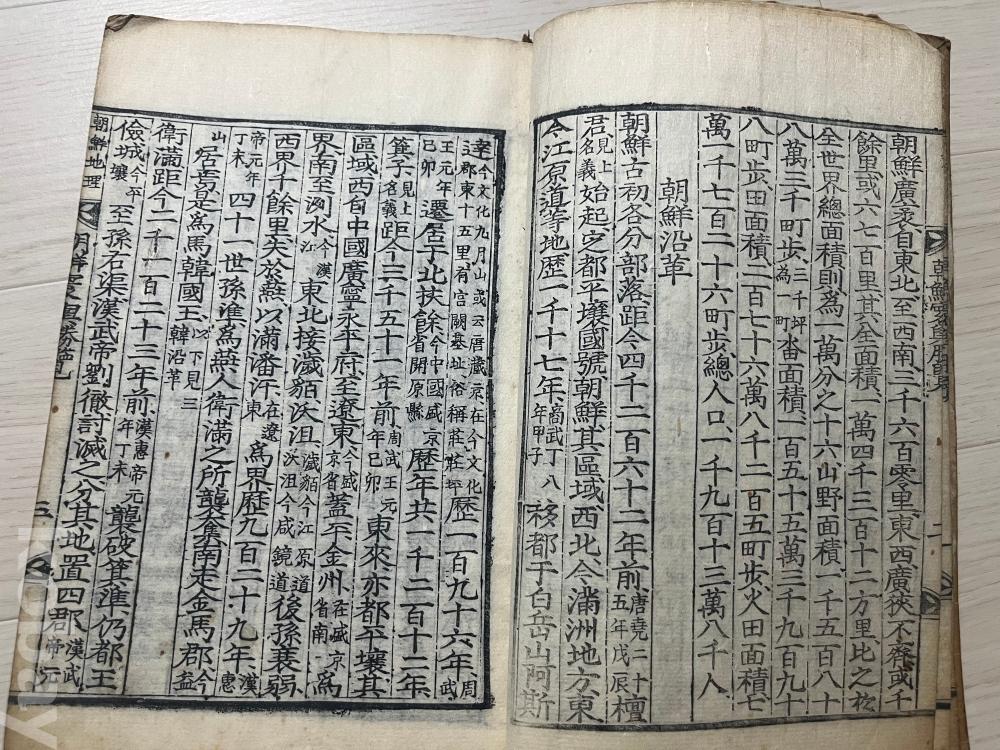 朝鮮廣袤自東北至西南三千六百零里東西廣狹不齊或千
餘里或六七百里其全面積一萬四千三百十二方里比之於
全世界總面積則爲一萬分之十六山野面積一千五百八十
八萬三千町步三千坪爲一町畓面積一百五十五萬三千九百九十
八町步田面積二百七十六萬八千二百五町步火田面積七
萬一千七百二十六町步總人口一千九百十三萬八千人
朝鮮沿革
朝鮮古初各分部落距今四千二百六十二年前唐堯二十五年戊辰檀
君見上名義始起定都平壤國號朝鮮其區域西北今滿洲地方東
今江原道等地歷一千十七年商武丁八年甲子移都于白岳山阿斯
達今文化九月山或云唐藏京在今文化郡東十五里有宮闕基址俗稱莊莊坪歷一百九十六年周武王元年己卯
遷居于北扶餘今中國盛京省開原縣歷年共一千二百十二年
箕子見上名義距今三千五十一年前周武王元年己卯東來亦都平壤其
區域西自中國廣寧永平府至遼東今盛京省蓋平金州在盛京省南爲
界南至洌水今漢江東北接濊貊沃沮濊貊今江原道沃沮今咸鏡道後孫衰弱
西界千餘里失於燕以滿潘汗在遼東爲界歷九百二十九年漢惠
帝元年丁未四十一世孫準爲燕人衛滿之所襲奪南走金馬郡今益
山居焉是爲馬韓國王以下見三韓沿革
衛滿距今二千一百二十三年前漢惠帝元年丁未襲破箕準仍都王
儉城今平壤至孫右渠漢武帝劉徹討滅之分其地置四郡漢武帝元
朝鮮地理
三
二